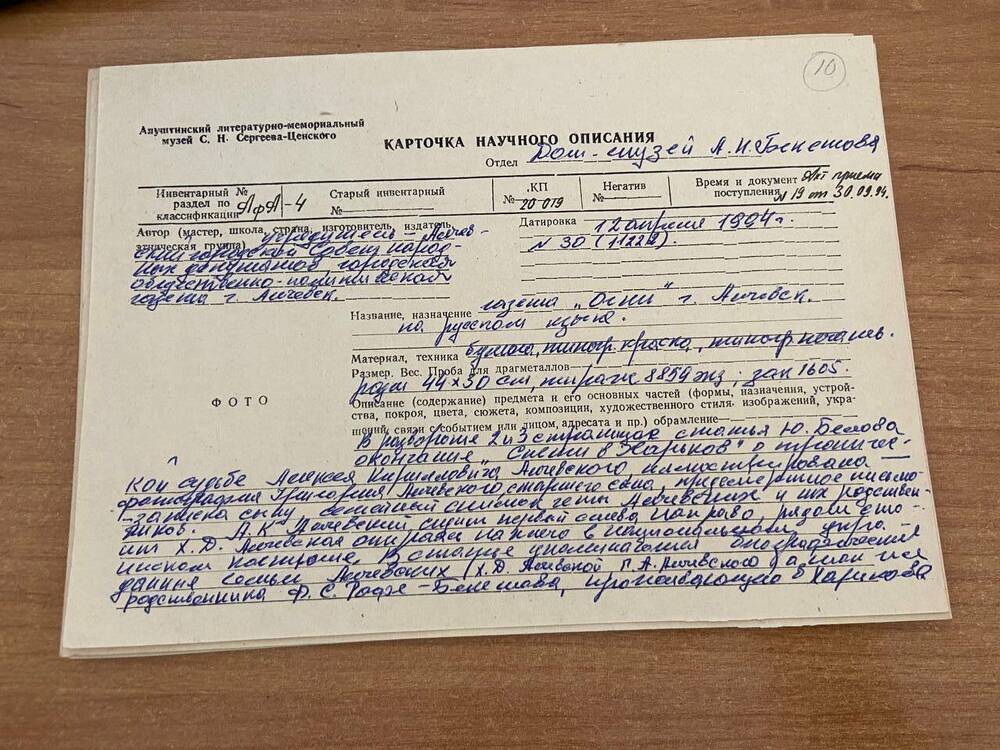 10
Алуштинский литературно-мемориальный
музей С. Н. Сергеева-Ценского
КАРТОЧКА НАУЧНОГО ОПИСАНИЯ
Отдел Дом-музей А.Н. Бекетова
Инвентарный № раздел по классификации АфА-4
Старый инвентарный №
КП № 20 019
Негатив №
Время и документ поступления Акт приема N 19 от 30.09.94.
Автор (мастер, школа, страна, изготовитель, издатель,
этническая группа) учредитель – Алчев-
ский городской Совет народ-
ных депутатов, городская
общественно-политическая
газета г. Алчевск.
Датировка 12 апреля 1994г.
N 30 (11222).
Название, назначение газета „Огни" г. Алчевск.
на русском языке.
Материал, техника бумага, типогр. краска, типогр. печать.
Размер. Вес. Проба для драгметаллов
разм 44×30 см, тираж 8854 экз; зак 1605.
ФОТО
Описание (содержание) предмета и его основных частей (формы, назначения, устрой-
ства, покроя, цвета, сюжета, композиции, художественного стиля. изображений, укра-
шений, связи с событием или лицом, адресата и пр.) обрамление
В развороте 2 и 3 страницах статья Ю. Белова
окончание „Спешит в Харьков" о трагичес-
кой судьбе Алексея Кирилловича Алчевского, иллюстрирована
фотография Григория Алчевского старшего сына, предсмертное письмо-
записка сыну, семейный снимок четы Алчевских и их родствен-
ников. А.К. Алчевский сидит первый слева направо, рядом стоя-
щая Х.Д. Алчевская опираясь на него в национальном укра-
инском костюме. В статье упоминания
данная семьи Алчевских (Х.Д. Алчевской Г.А. Алчевского а также их
родственника Ф.С. - Бекетова, проживающего в Харькове